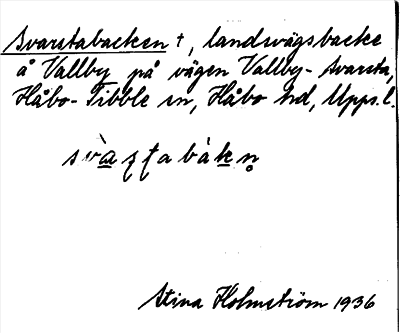 Svarstabacken †, landsvägsbacke
å Vallby på vägen Vallby - Svarsta,
Håbo-Tibble sn, Håbo hd, Upps. l.
Stina Holmström 1936